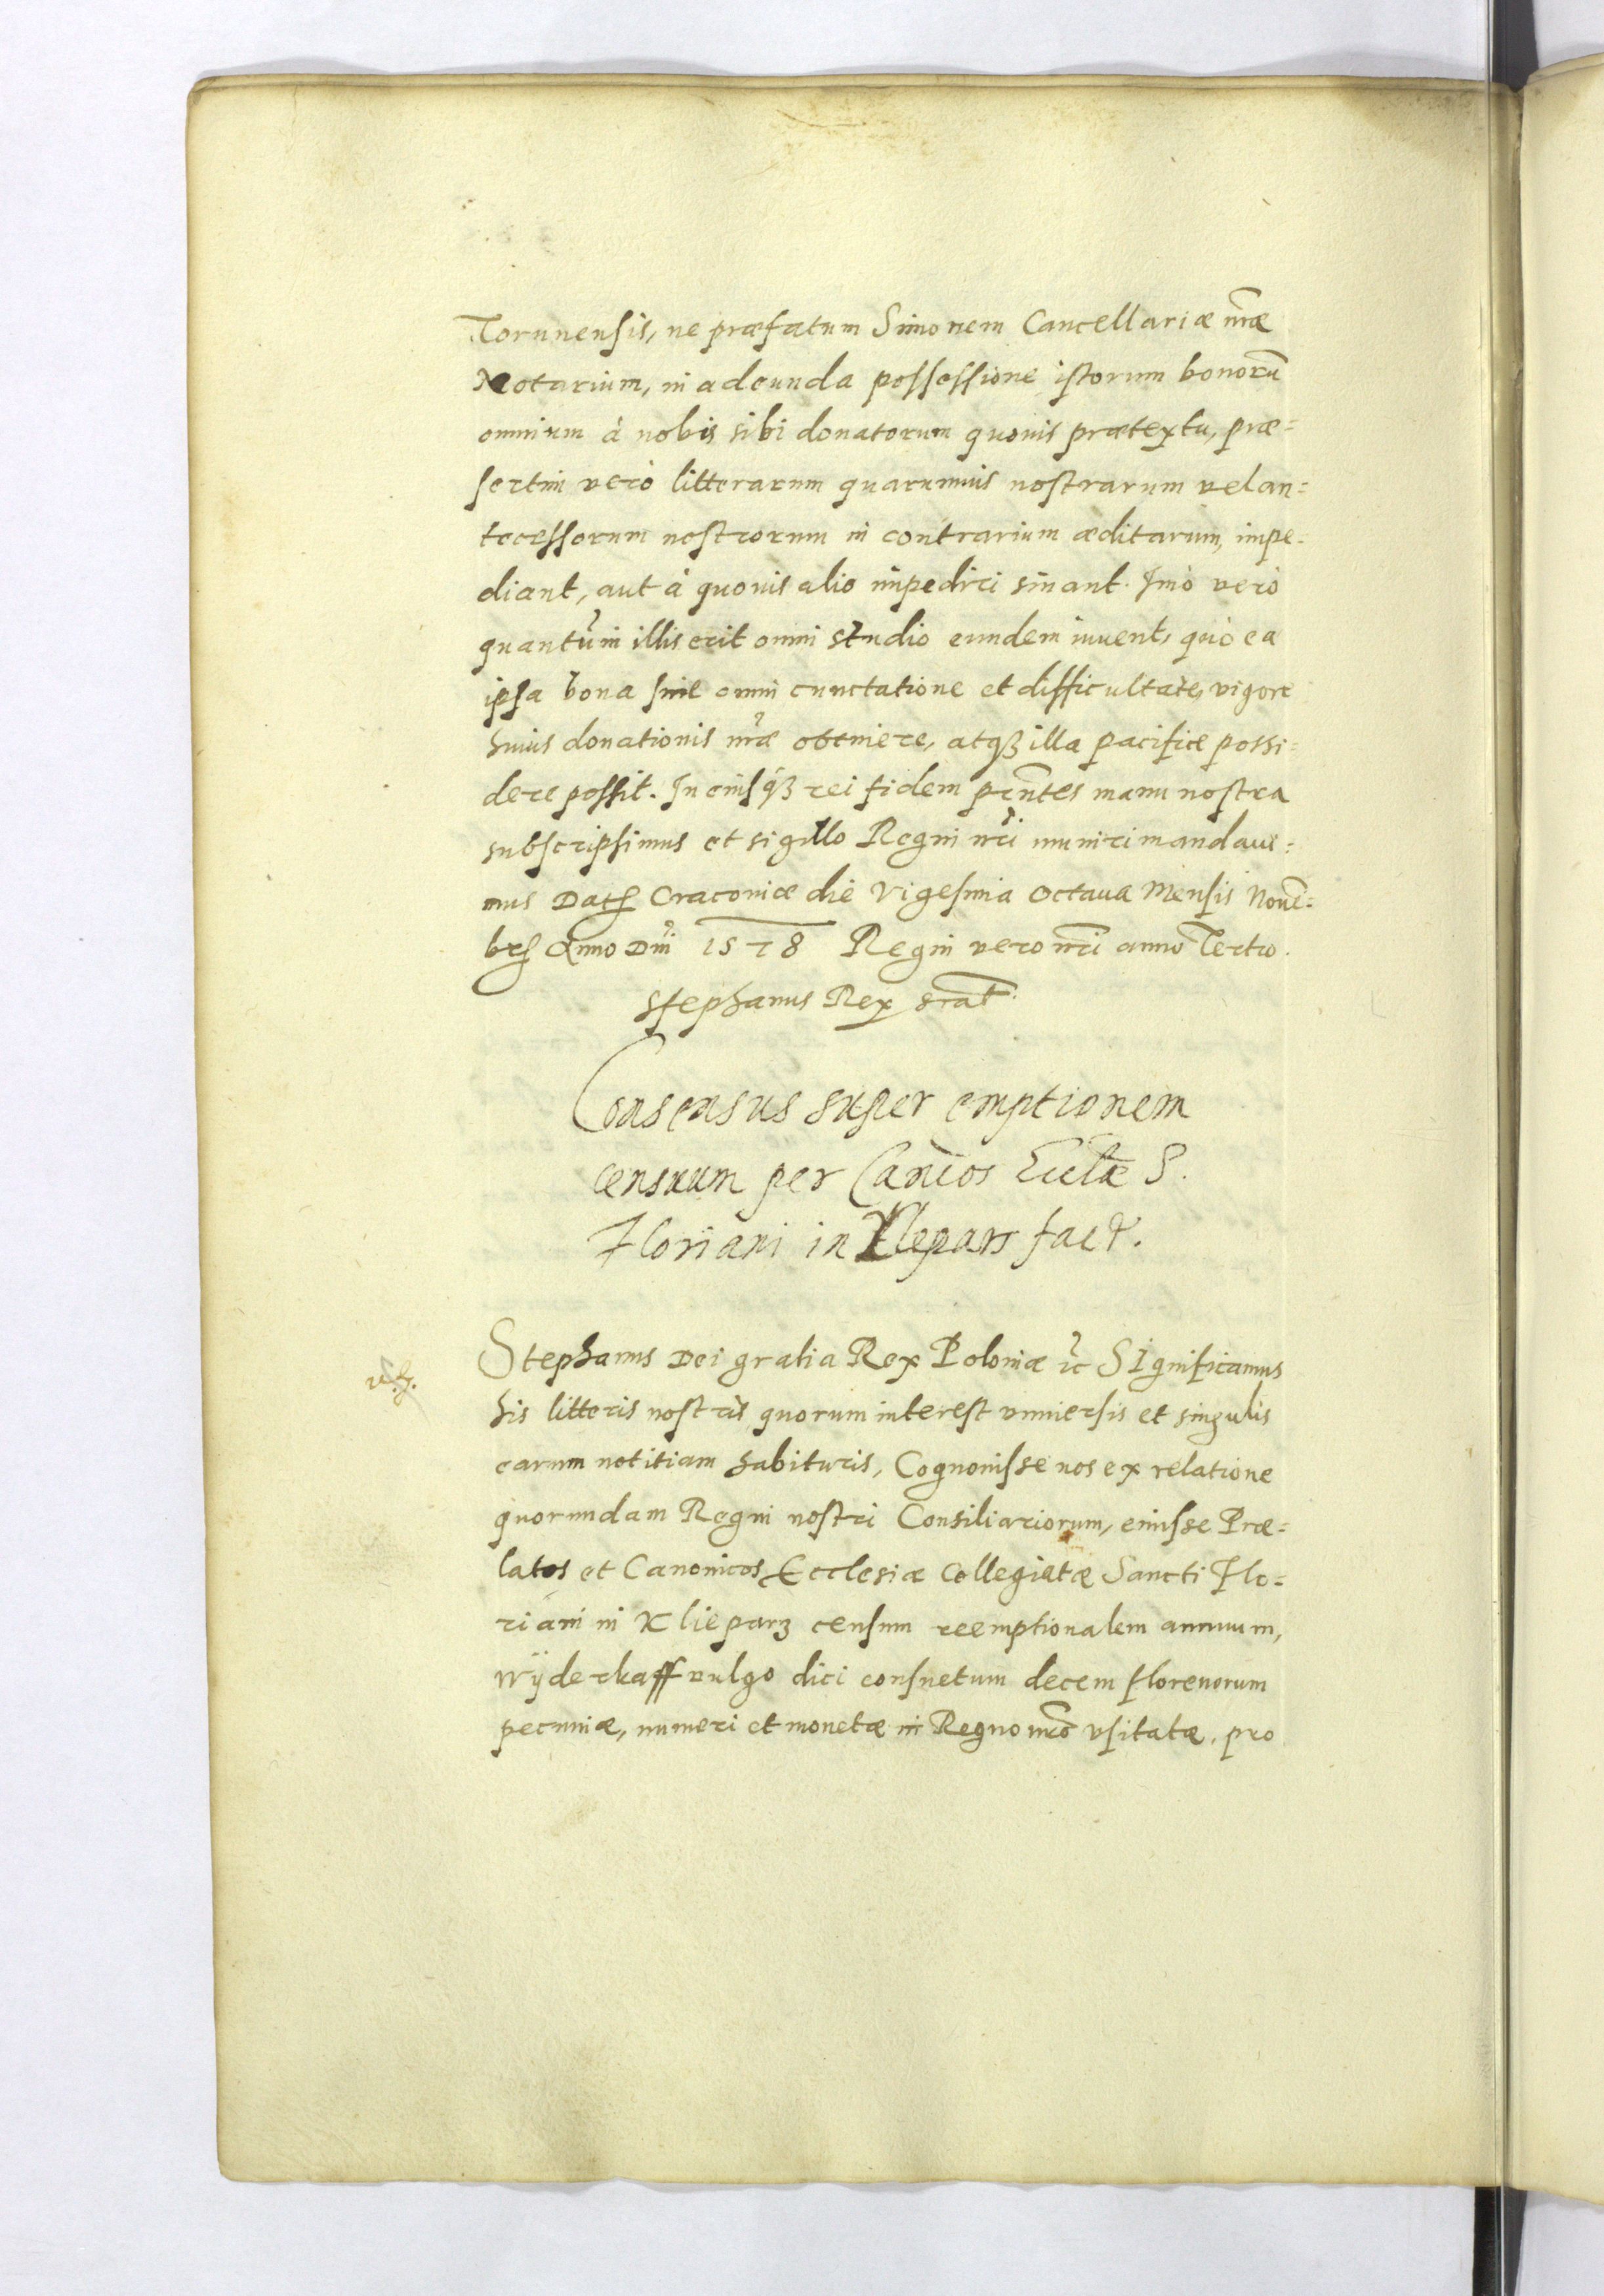 Torunensis, ne præfatum Simonem Cancellariæ nr̃æ
Notarium, in adeunda possessione istorum bonorũ
omnium à nobis sibi donatorum quouis prætextu, præ=
sertim verò litterarum quarumuis nostrarum vel an=
tecessorum nostrorum in contrarium æditarum, impe=
diant, aut à quouis alio impediri sinant. Imò verò
quantum in illis erit omni studio eundem iuuent, quò ea
ipsa bona sine omni cunctatione et difficultate, vigore
huius donationis nr̃æ obtinere, atqꝫ illa pacifice possi=
dere possit. In cuiusqꝫ rei fidem pr̃ntes manu nostra
subscripsimus et sigillo Regni nr̃i muniri mandaui=
mus Datꝭ Cracoviæ die Vigesima Octaua Mensis Nouẽ=
brꝭ Anno Dñi 1578 Regni vero nr̃i anno Tertio.
Stephanus Rex srat̃.
Consensus super emptionem
censuum per Can̄cos Eccl̃æ S.
Floriani in Klepars fact.
Stephanus Dei gratia Rex Poloniæ &c̃ Significamus
his litteris nostris quorum interest vniuersis et singulis
earum notitiam habituris, Cognouisse nos ex relatione
quorundam Regni nostri Consiliariorum, emisse Præ=
latos et Canonicos Ecclesiæ Collegiatæ Sancti Flo=
riani in Klieparz censum reemptionalem annuum,
Wÿderkaff vulgo dici consuetum decem florenorum
pecuniæ, numeri et monetæ in Regno nr̃o vsitatæ, pro